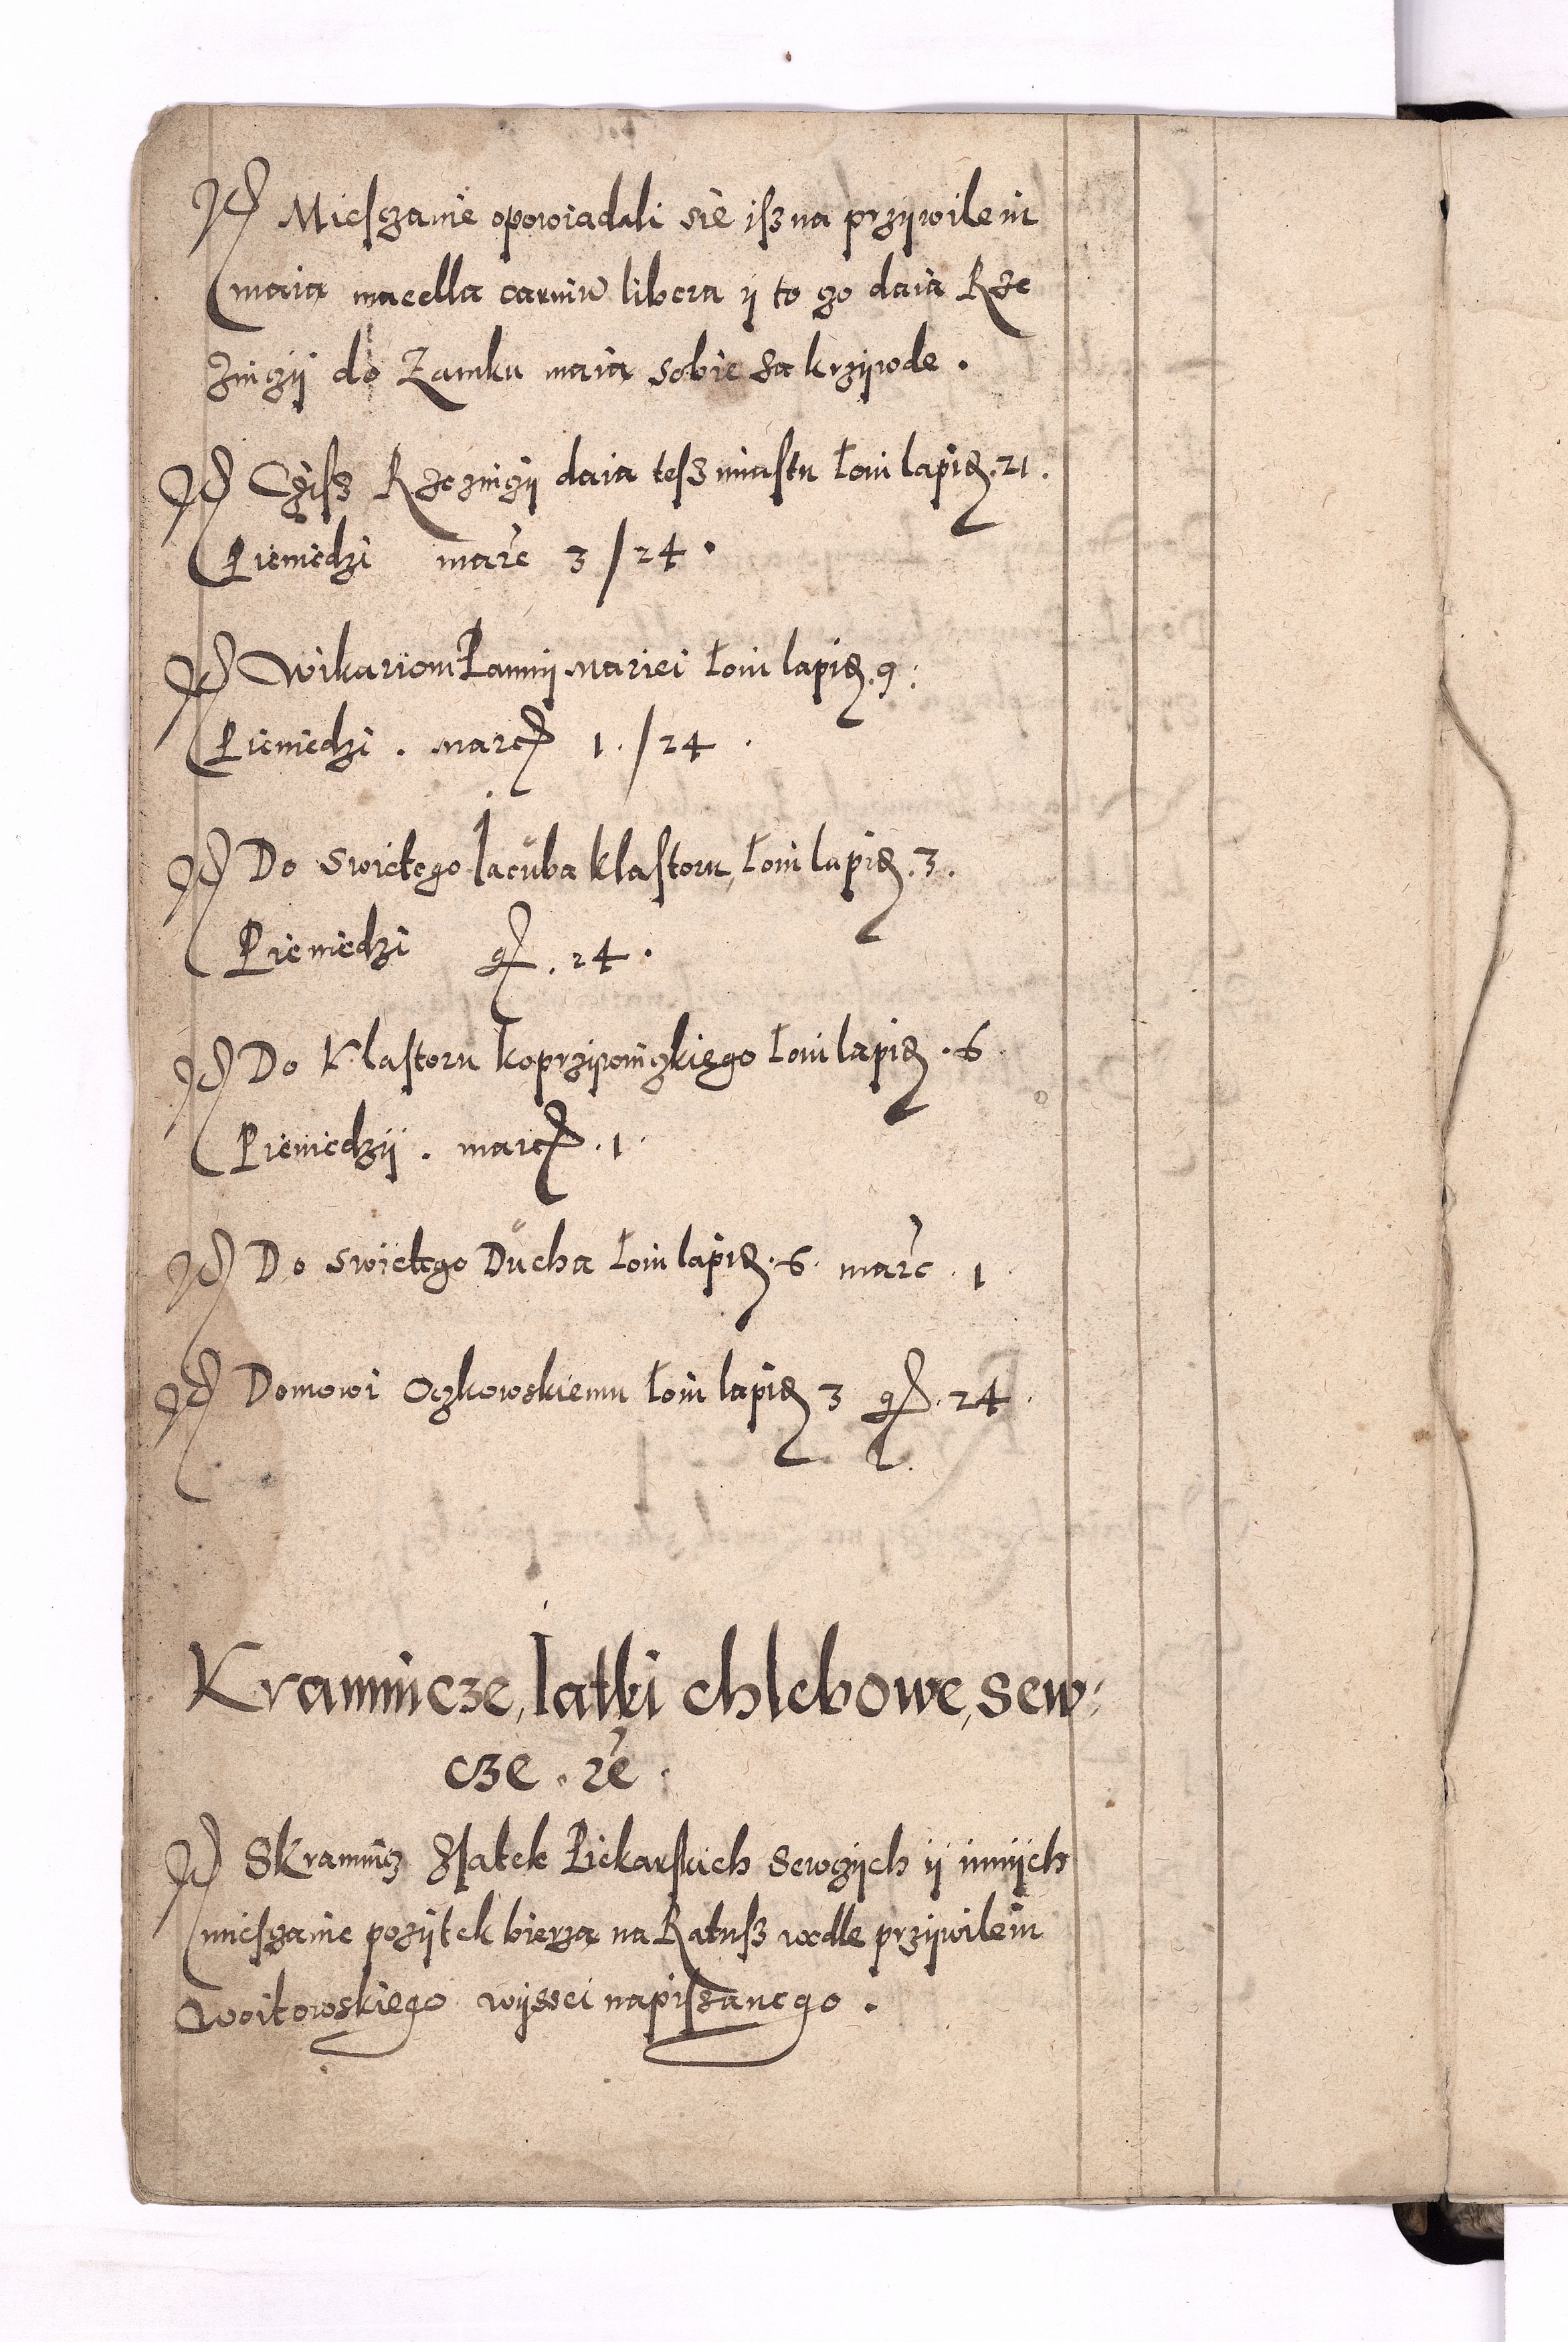 Jt Miesczanie opowiadali sie isz na przijwileiu
maia macella carniu libera ij to go daia Rze
znicij do Zamku maia sobie za krzijwde .
Jt Cziss Rzeznicij daia tess miastu łoiu lapid. 21 .
Pieniedzi marc 3 / 24 .
Jt Wikariom Pannij Mariei łoiu lapid . 9 .
Pieniedzi . marc 1 . / 24 .
Jt Do swietego Iacuba klastoru, łoiu lapid . 3 .
Pieniedzi g . 24 .
Jt Do Klastoru koprziwniczkiego łoiu lapid . 6
Pieniedzij . marc . 1 .
Jt Do swietego Ducha łoiu lapid . 6 . marc . 1
Jt Domowi Oczkowskiemu łoiu lapid 3 g . 24 .
Kramnicze, Iatki chlebowe, sew-
cze . rc .
Jt Skramnicz zIatek Piekarskich Sewczijch ij innijch
miesczanie pozijtek bierza na Ratusz wedle przijwileiu
Woitowskiego wijssei napisanego .